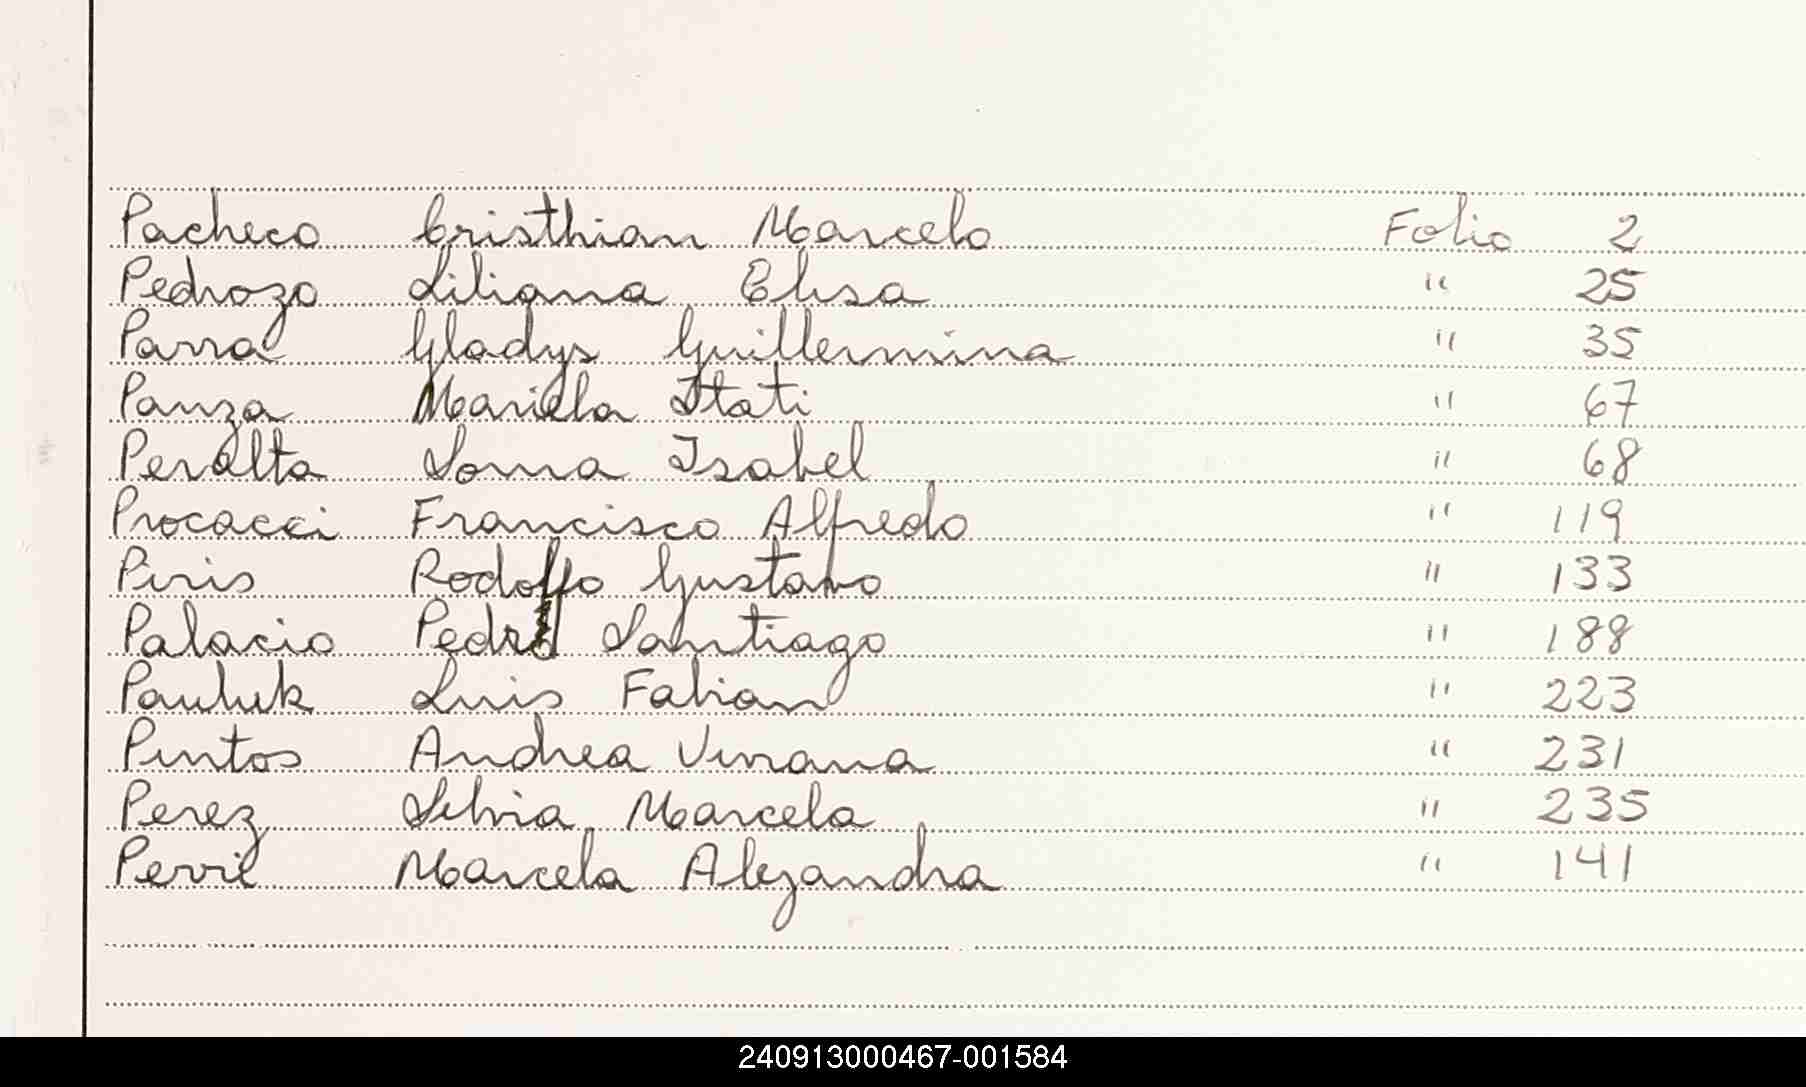 Pacheco Cristhian Marcelo Folio 2
Pedrozo Liliana Elisa " 25
Parra Gladys Guillermina " 35
Panza Mariela Itati " 67
Peralta Sonia Isabel " 68
Procacci Francisco Alfredo " 119
Piris Rodolfo Gustavo " 133
Palacio Pedro Santiago " 188
Pauluk Luis Fabian " 223
Pintos Andrea Viviana " 231
Perez Silvia Marcela " 235
Marcela Alejandra " 141
240913000467-001584